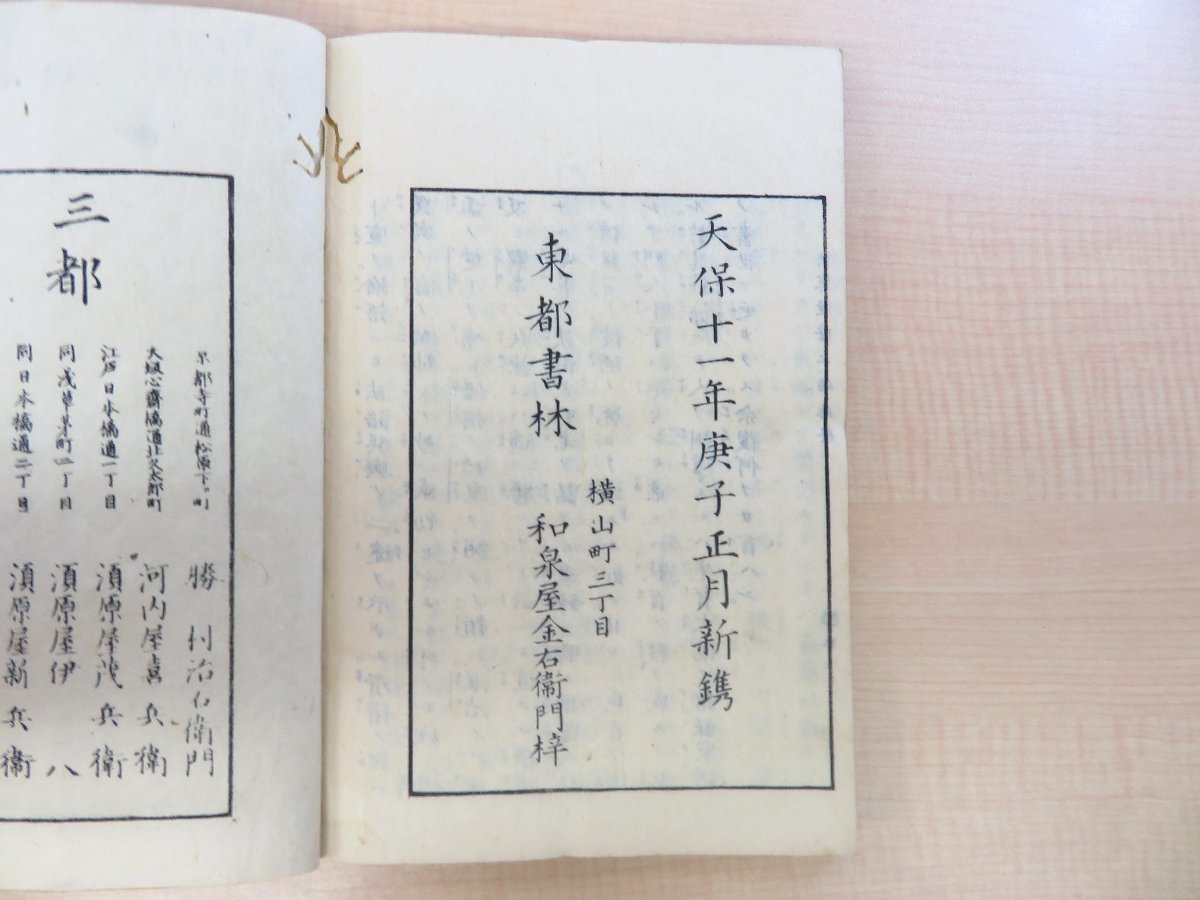 天保十一年庚子正月新鐫
東都書林
横山町三丁目
和泉屋金右衛門梓
三都
京都寺町通松原下ル町
勝村治右衛門
大坂心齋橋通北久太郎町
河内屋喜兵衛
江戸日本橋通一丁目
須原屋茂兵衛
同浅草茅町二丁目
須原屋伊八
同日本橋通二丁目
須原屋新兵衛